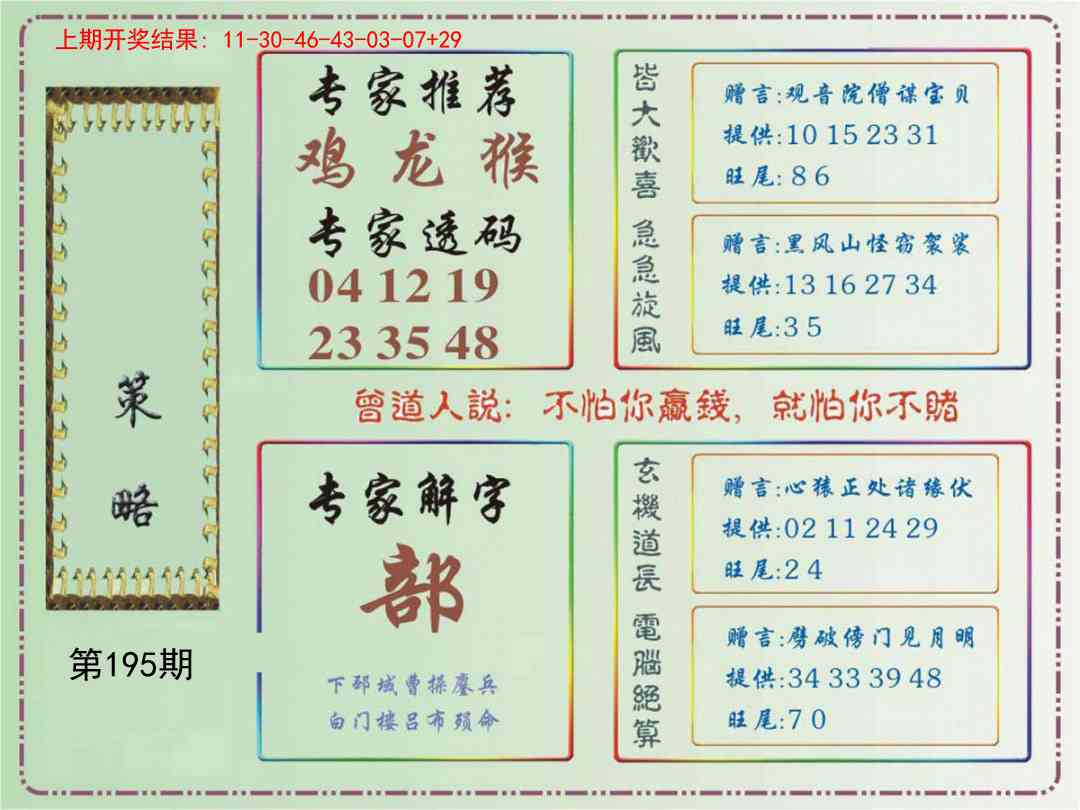 上期开奖结果: 11-30-46-43-03-07+29
策略
第195期
专家推荐
鸡 龙 猴
专家透码
04 12 19
23 35 48
皆大歡喜
赠言:观音院僧谋宝贝
提供:10 15 23 31
旺尾: 8 6
急急旋風
赠言:黑风山怪窃袈裟
提供:13 16 27 34
旺尾:3 5
曾道人説: 不怕你赢錢, 就怕你不賭
专家解字
部
下邳城曹操鏖兵
白门楼吕布殒命
玄機道長
赠言:心猿正处诸缘伏
提供:02 11 24 29
旺尾:2 4
電腦絕算
赠言:劈破傍门见月明
提供:34 33 39 48
旺尾:7 0